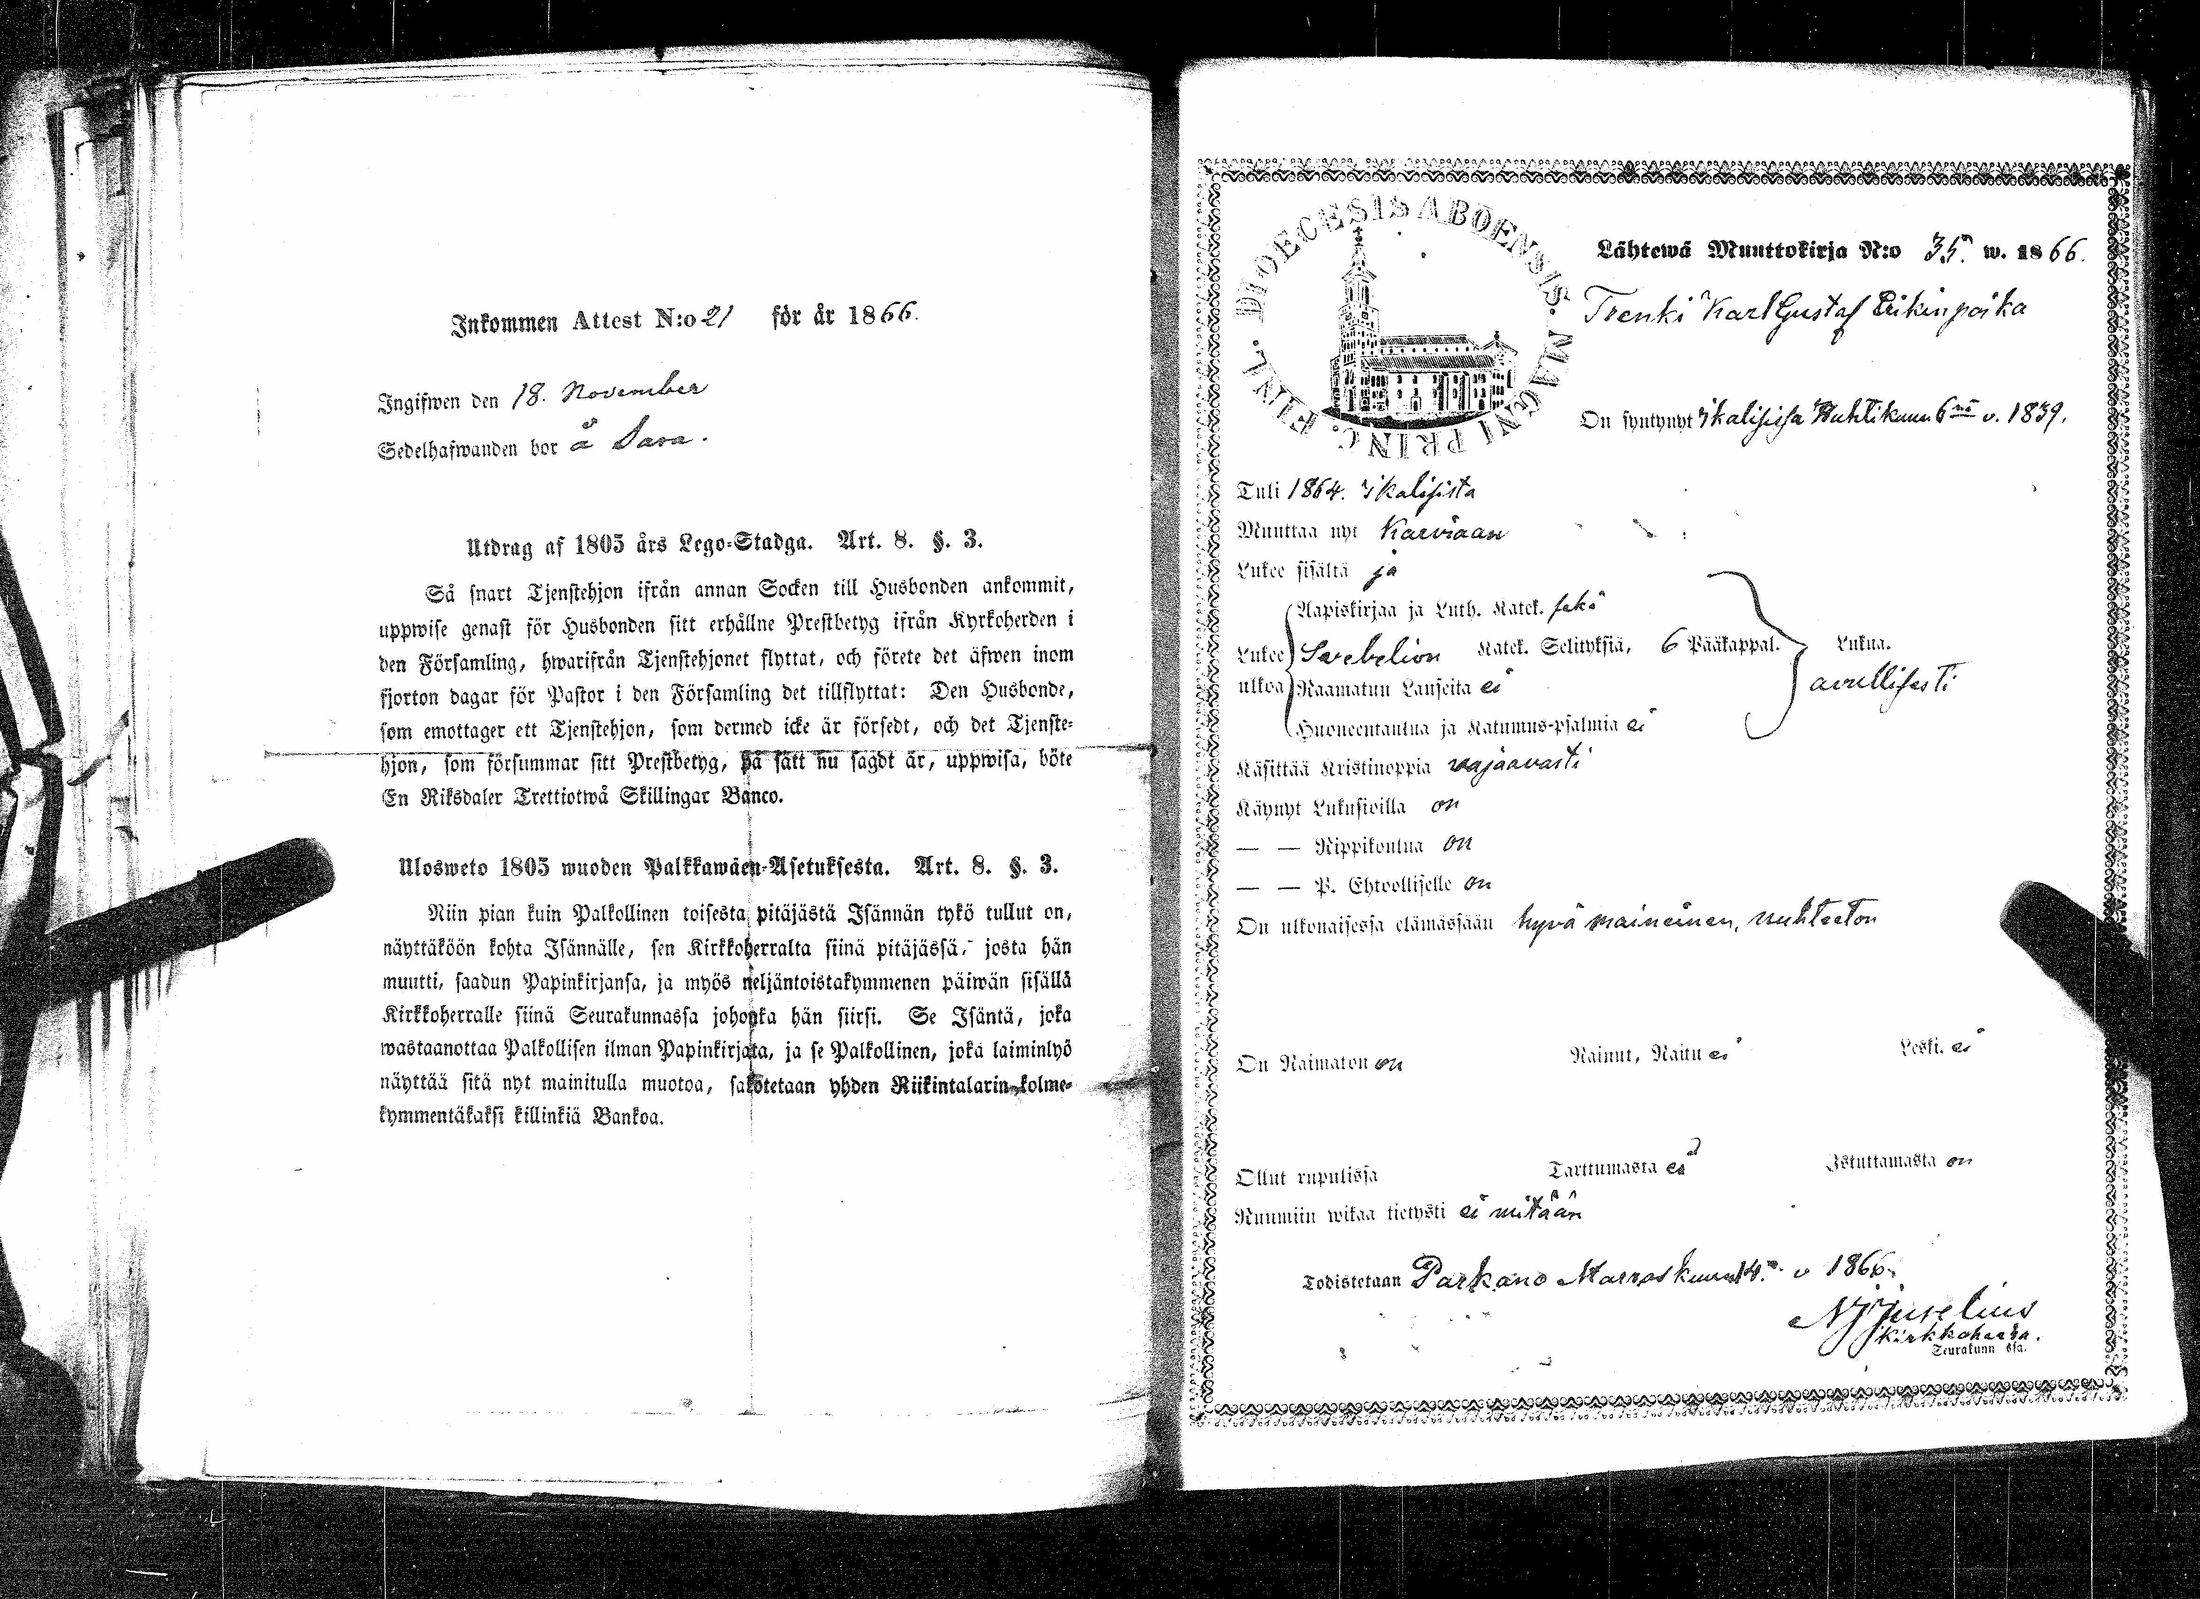 Inkommen Attest N:o 21 för år 1866.
Ingifwen den 18. November
Sedelhafwanden bor å Sara.
Utdrag af 1805 års Lego-Stadga. Art. 8. §. 3.
Så snart Tjenstehjon ifrån annan Socken till Husbonden ankommit,
uppwise genast för Husbonden sitt erhållne Prestbetyg ifrån Kyrkoherden i
den Församling, hwarifrån Tjenstehjonet flyttat, och förete det äfwen inom
fjorton dagar för Pastor i den Församling det tillflyttat: Den Husbonde,
som emottager ett Tjenstehjon, som dermed icke är försedt, och det Tjenste-
hjon, som försummar sitt Prestbetyg, på sätt nu sagdt är, uppwisa, böte
En Riksdaler Trettiotwå Skillingar Banco.
Ulosweto 1805 wuoden Palkkawäen-Asetuksesta. Art. 8. §. 3.
Niin pian kuin Palkollinen toisesta pitäjästä Isännän tykö tullut on,
näyttäköön kohta Isännälle, sen Kirkkoherralta siinä pitäjässä, josta hän
muutti, saadun Papinkirjansa, ja myös neljäntoistakymmenen päiwän sisällä
Kirkkoherralle siinä Seurakunnassa johonka hän siirsi. Se Isäntä, joka
wastaanottaa Palkollisen ilman Papinkirjata, ja se Palkollinen, joka laiminlyö
näyttää sitä nyt mainitulla muotoa, sakotetaan yhden Riikintalarin kolme-
kymmentäkaksi killinkiä Bankoa.
DIOECESIS ABOENSIS. MAGNI PRINC. FINL.
Lähtewä Muuttokirja N:o 35. w. 1866.
Trenki Karl Gustaf Erikinpoika
On syntynyt Ikalisissa Huhtikuun 6nä v. 1839.
Tuli 1864. Ikalisista
Muuttaa nyt Karviaan
Lukee sisältä ja
Aapiskirjaa ja Luth. Katek. sekä
Lukee Svebelion Katek. Selityksiä, 6 Pääkappal. Lukua.
ulkoa Raamatun Lauseita ei avullisesti
Huoneentaulua ja Katumus-psalmia ei
Käsittää Kristinoppia vajaavasti
Käynyt Lukusioilla on
— — Rippikoulua on
— — P. Ehtoolliselle on
On ulkonaisessa elämässään hyvä maineinen, nuhteeton
On Naimaton on Nainut, Naitu ei Leski. ei
Ollut rupulissa Tarttumasta ei Istuttamasta on
Ruumiin wikaa tietysti ei mitään
Todistetaan Parkano Marraskuun 14. v 1866.
Juselius
Kirkkoherra.
Seurakunn ssa.